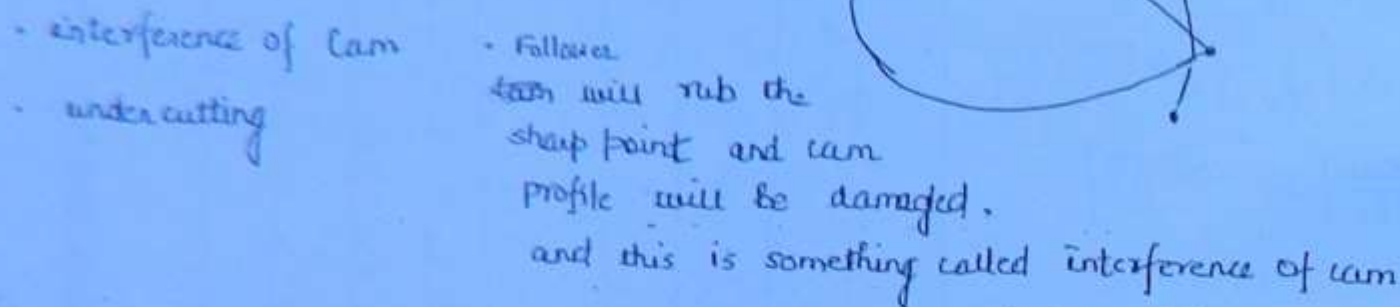 · interference of Cam
· under cutting
· Follower
cam will rub the
sharp point and cam
profile will be damaged.
and this is something called interference of cam